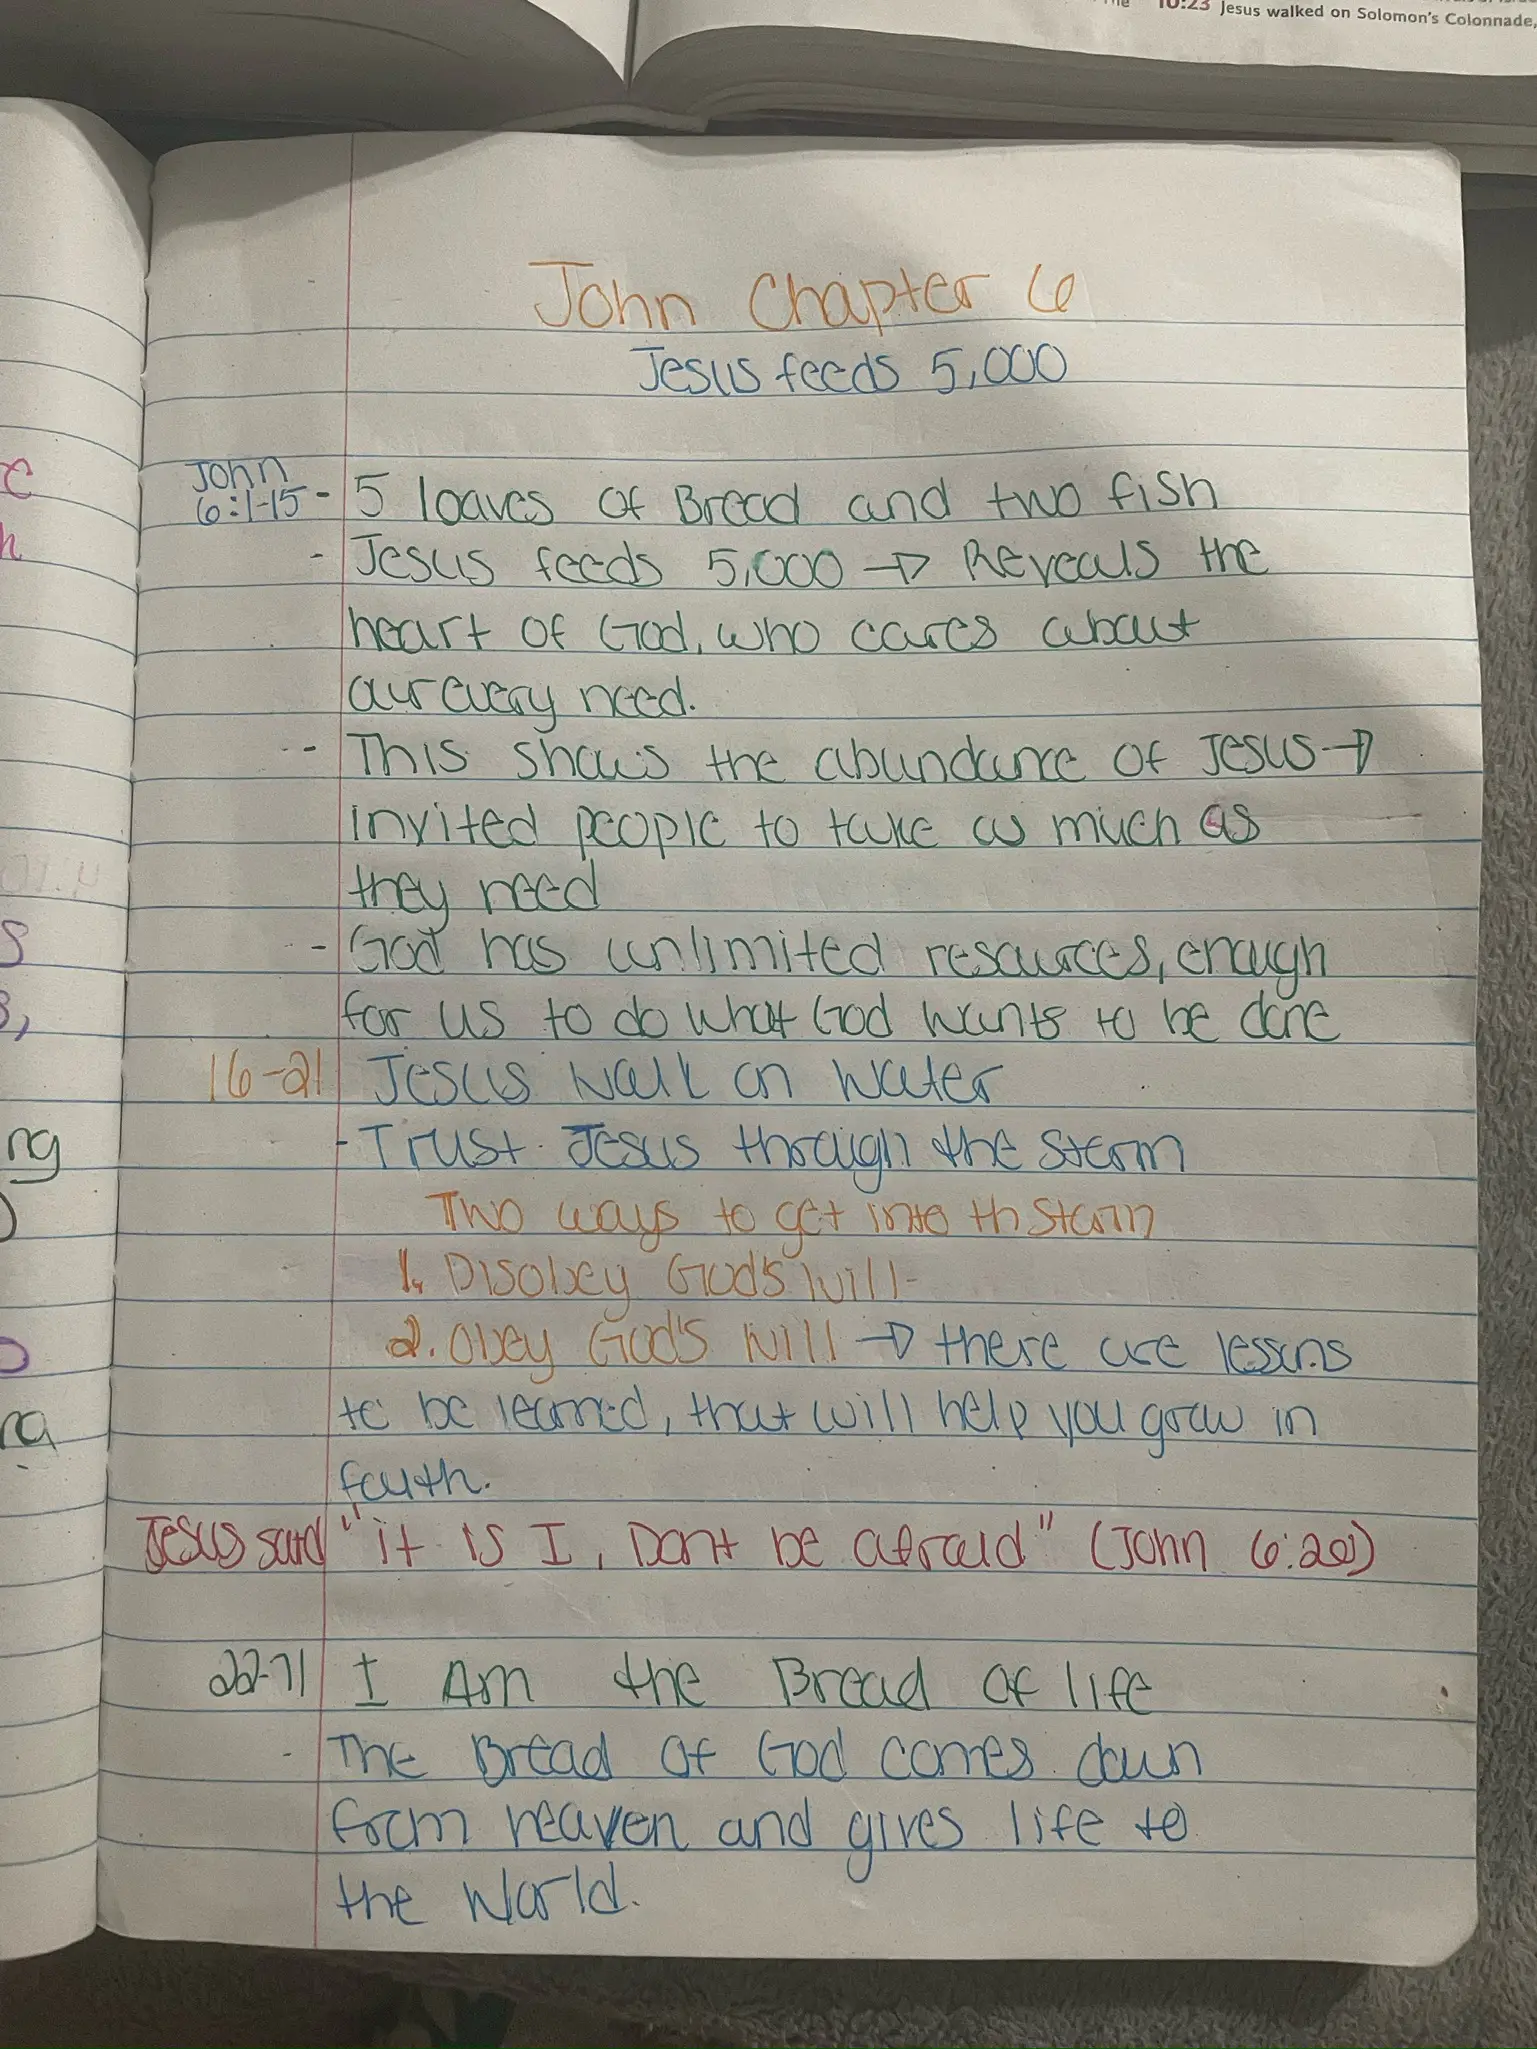 10:23 Jesus walked on Solomon's Colonnade,
John Chapter 6
Jesus feeds 5,000
John
6:1-15 - 5 loaves of Bread and two fish
- Jesus feeds 5,000 → Reveals the
heart of God, who cares about
our every need.
-- This shows the abundance of Jesus →
invited people to take as much as
they need
- God has unlimited resources, enough
for us to do what God wants to be done
16-21 Jesus walk on water
- Trust Jesus through the storm
Two ways to get into th storm
1. Disobey God's will-
2. Obey God's will → there are lessons
to be learned, that will help you grow in
faith.
Jesus said "it is I, Dont be afraid" (John 6:20)
22-71 I Am the Bread of life
- The Bread of God comes down
from heaven and gives life to
the World.